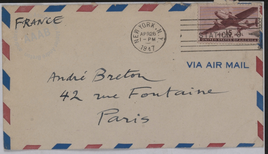 FRANCE
NEW YORK, N.Y.
1-PM
1947
VIA AIR MAIL
André Breton
42 rue Fontaine
Paris